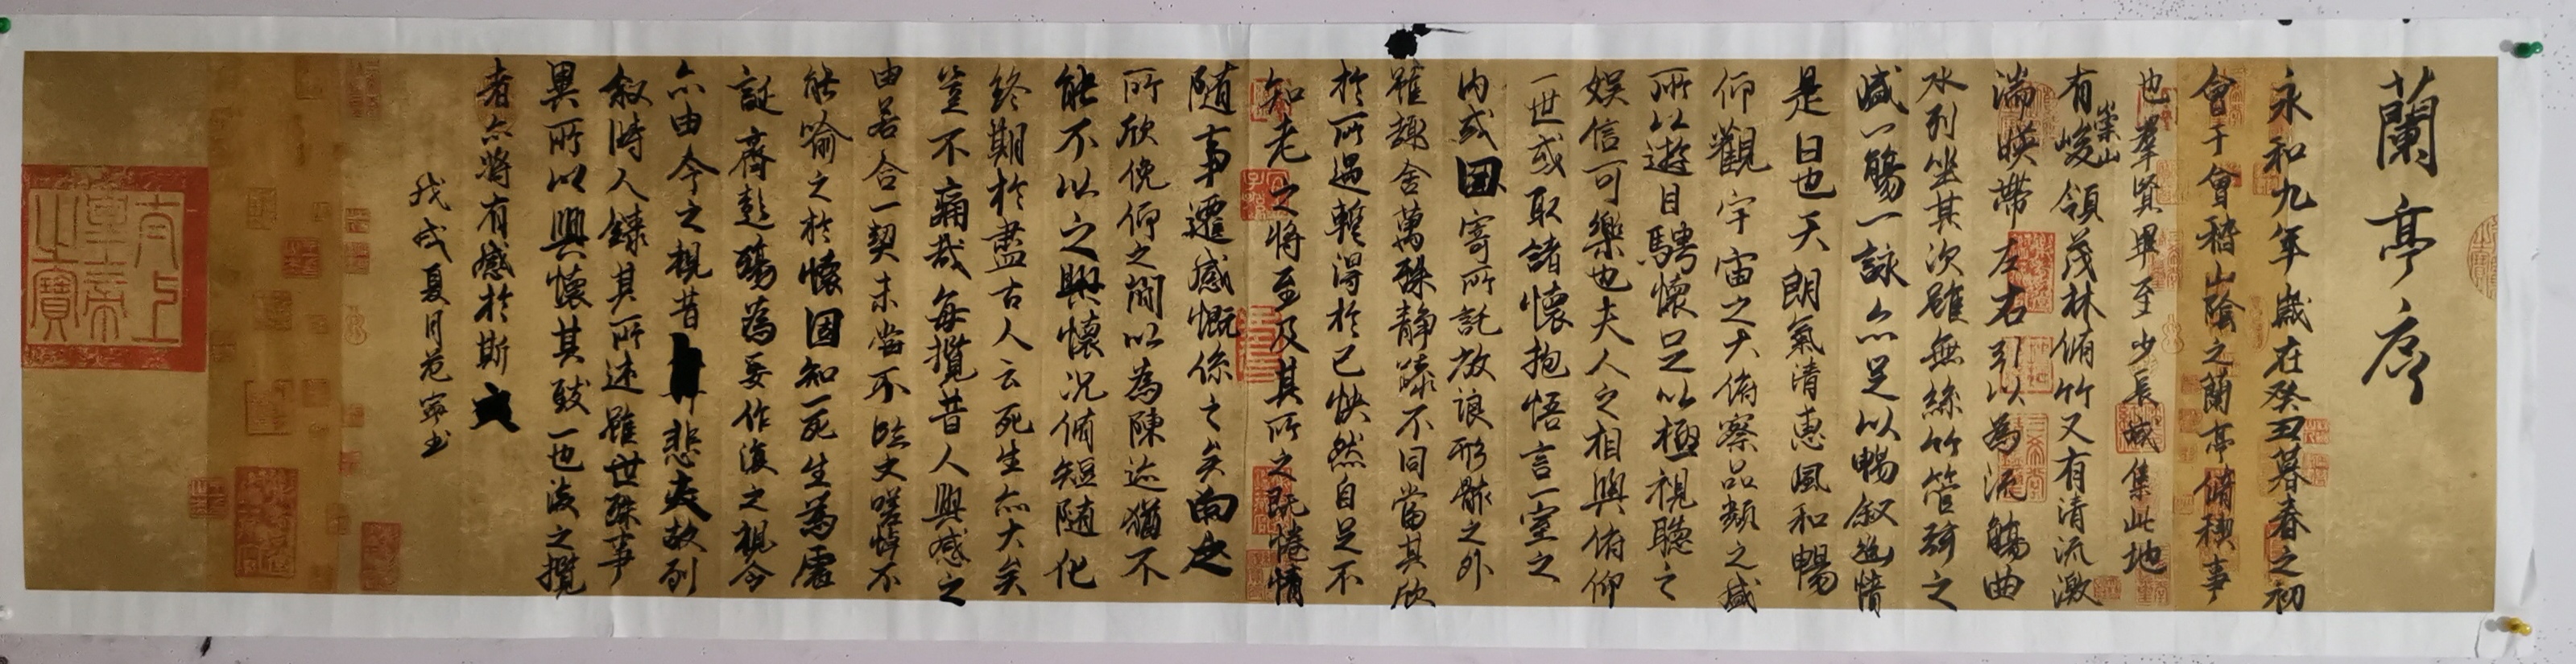 蘭亭序
永和九年歲在癸丑暮春之初
會于會稽山陰之蘭亭脩稧事
也羣賢畢至少長咸集此地
有崇山峻領茂林脩竹又有清流激
湍暎帶左右引以為流觴曲
水列坐其次雖無絲竹管弦之
盛一觴一詠亦足以暢敘幽情
是日也天朗氣清惠風和暢
仰觀宇宙之大俯察品類之盛
所以遊目騁懷足以極視聽之
娛信可樂也夫人之相與俯仰
一世或取諸懷抱悟言一室之
內或因寄所託放浪形骸之外
雖趣舍萬殊靜躁不同當其欣
於所遇暫得於己快然自足不
知老之將至及其所之既惓情
隨事遷感慨係之矣向之
所欣俛仰之間以為陳迹猶不
能不以之興懷況脩短隨化
終期於盡古人云死生亦大矣
豈不痛哉每攬昔人興感之
由若合一契未嘗不臨文嗟悼不
能喻之於懷固知一死生為虛
誕齊彭殤為妄作後之視今
亦由今之視昔悲夫故列
敘時人錄其所述雖世殊事
異所以興懷其致一也後之攬
者亦將有感於斯文
戊戌夏月范寧書
太上
皇帝
之寶